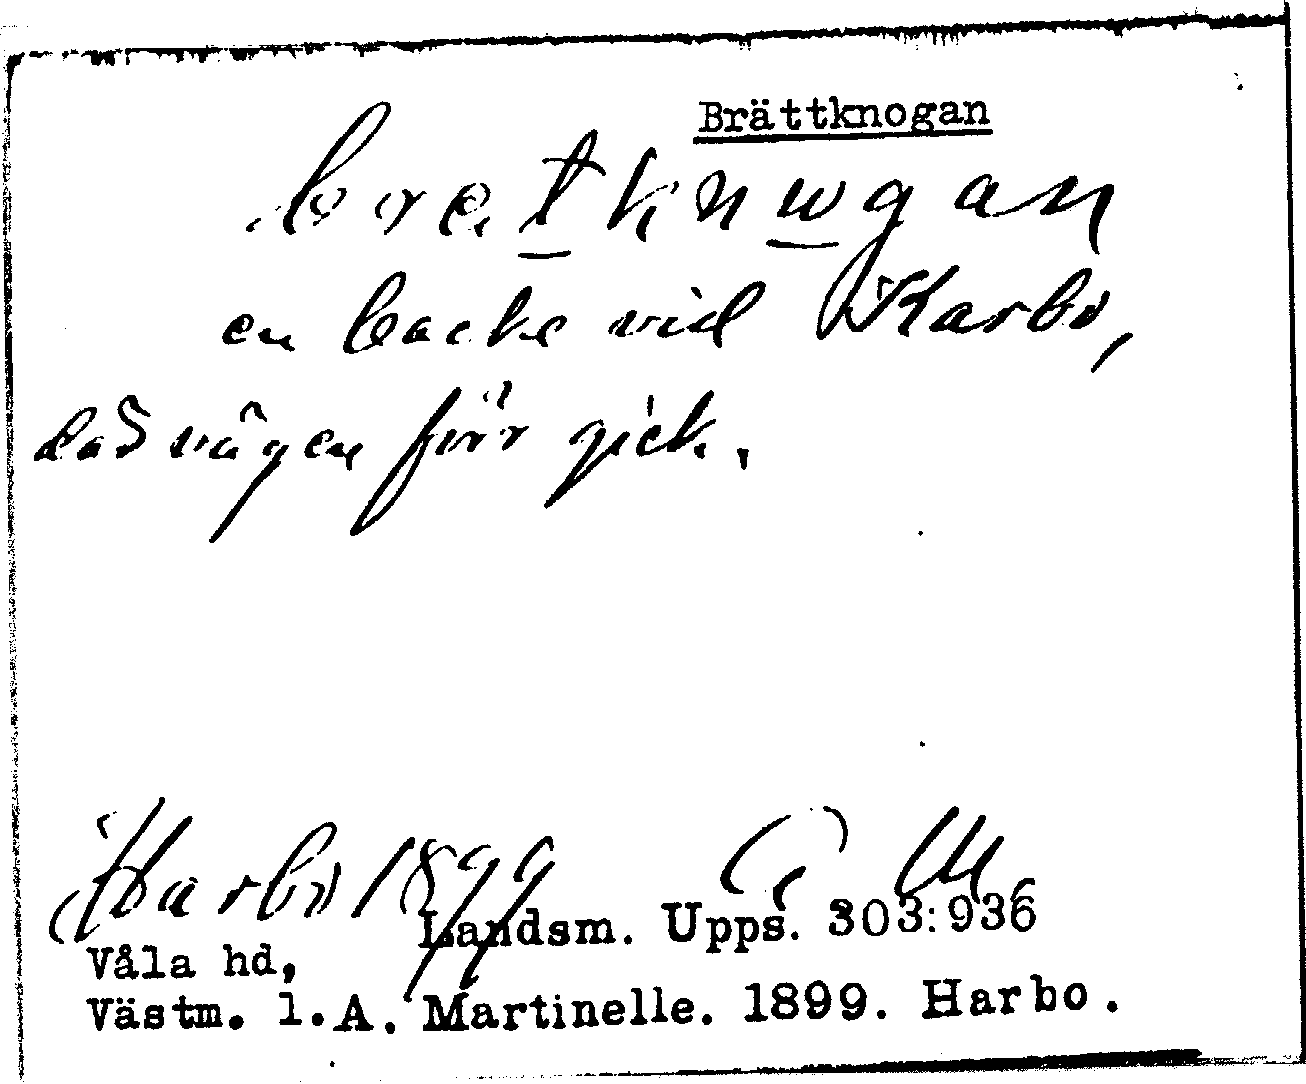 Brättknogan
bretknωgan
en backe vid Karbo,
där vägen förr gick.
Harbo 1899
Landsm. Upps. 303:936
Våla hd,
Västm. l. A. Martinelle. 1899. Harbo.